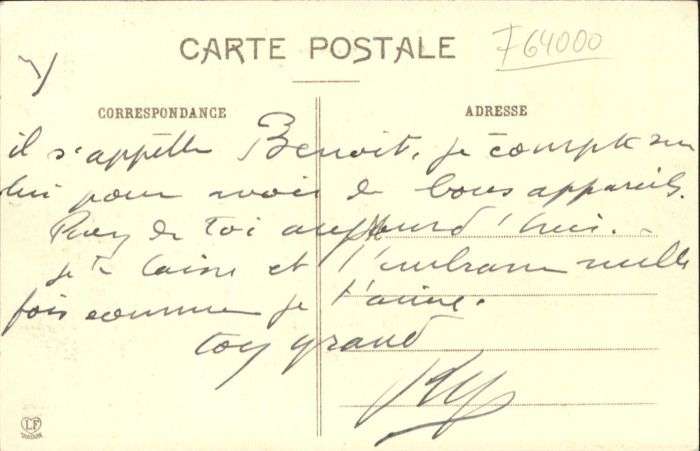 CARTE POSTALE
F64000
CORRESPONDANCE
ADRESSE
il s'appelle Benoit, je compte sur
lui pour avoir de bons appareils.
Rien de toi aujourd'hui.
je te laisse et t'embrasse mille
fois comme je t'aime.
ton grand
LF